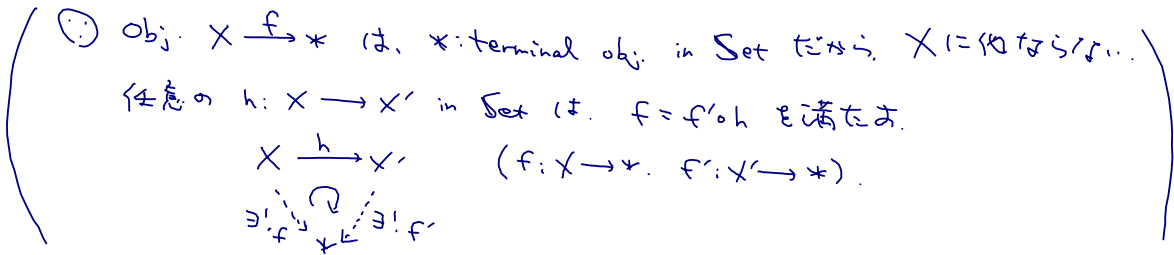 ∵ Obj. X -f→ * は、*: terminal obj. in Set だから、Xに他ならない.
任意の h: X → X' in Set は. f = f'∘h を満たす.
X -h→ X' (f: X → *. f': X' → *).
∃! f * ∃! f'